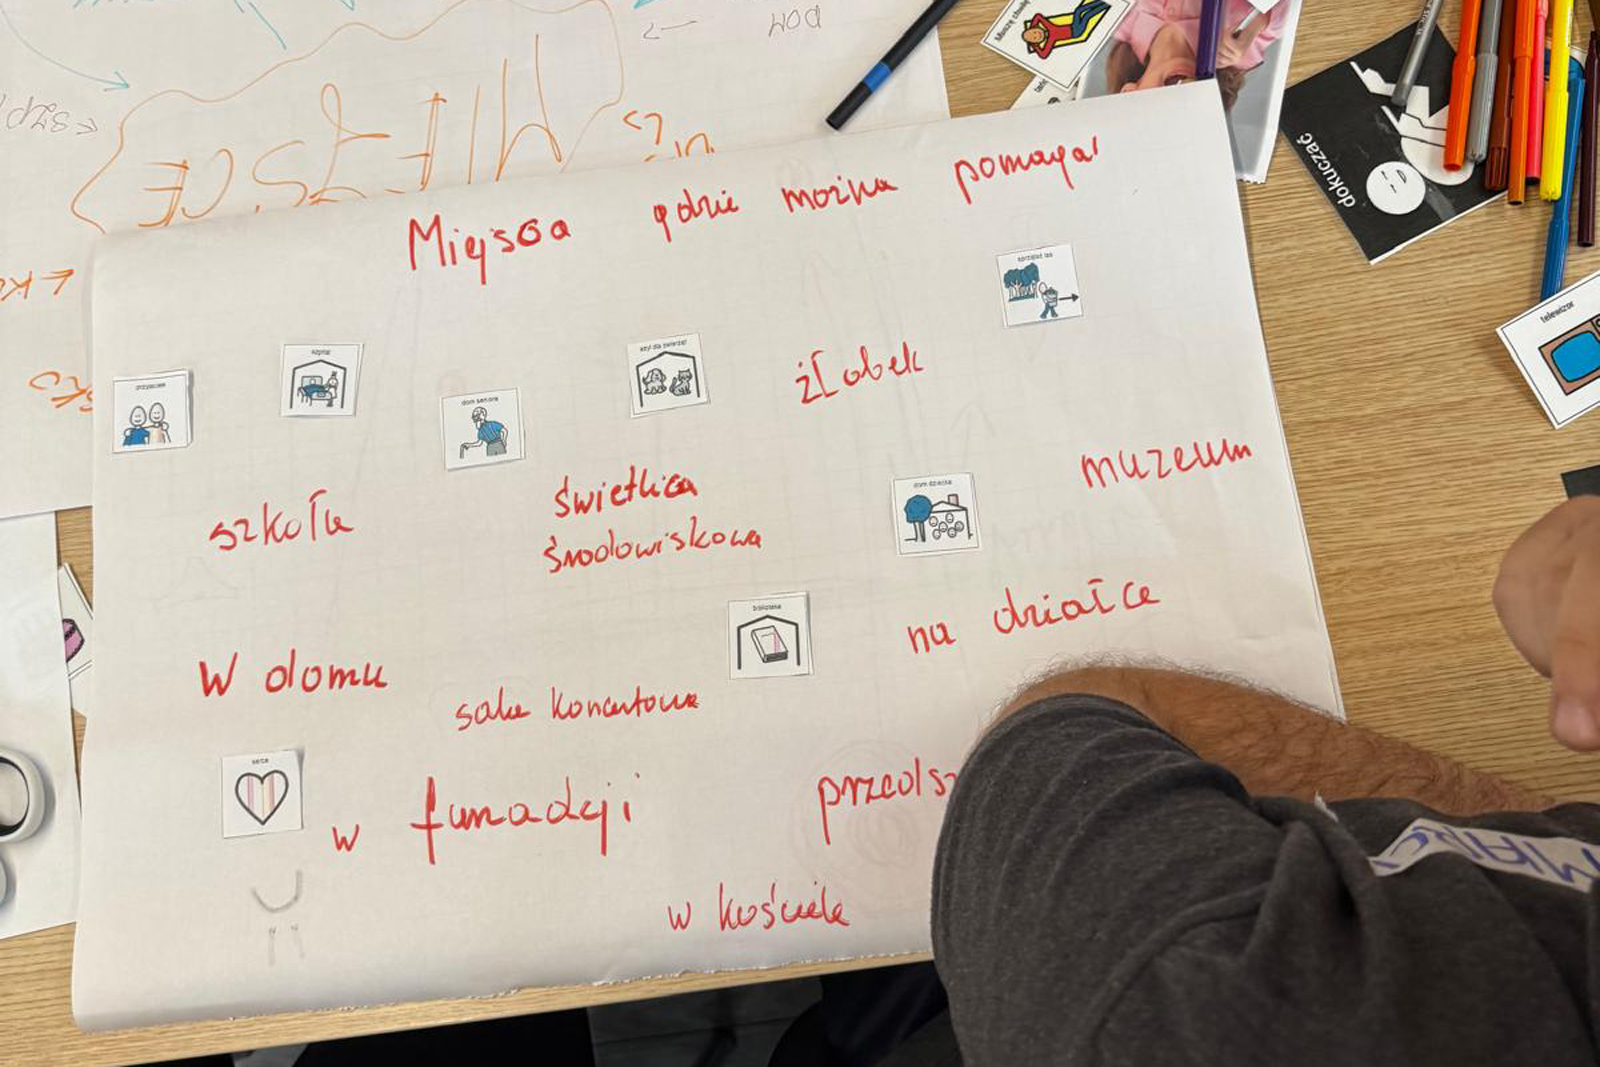 DOM
MIEJSCE
Miejsca gdzie można pomagać
sprzątać las
przyjaciele
szpital
azyl dla zwierząt
dom seniora
żłobek
dokuczać
telewizor
szkoła
świetlica
środowiskowa
dom dziecka
muzeum
biblioteka
na działce
W domu
sala koncertowa
serce
w funadcji
przedsz
w kościele